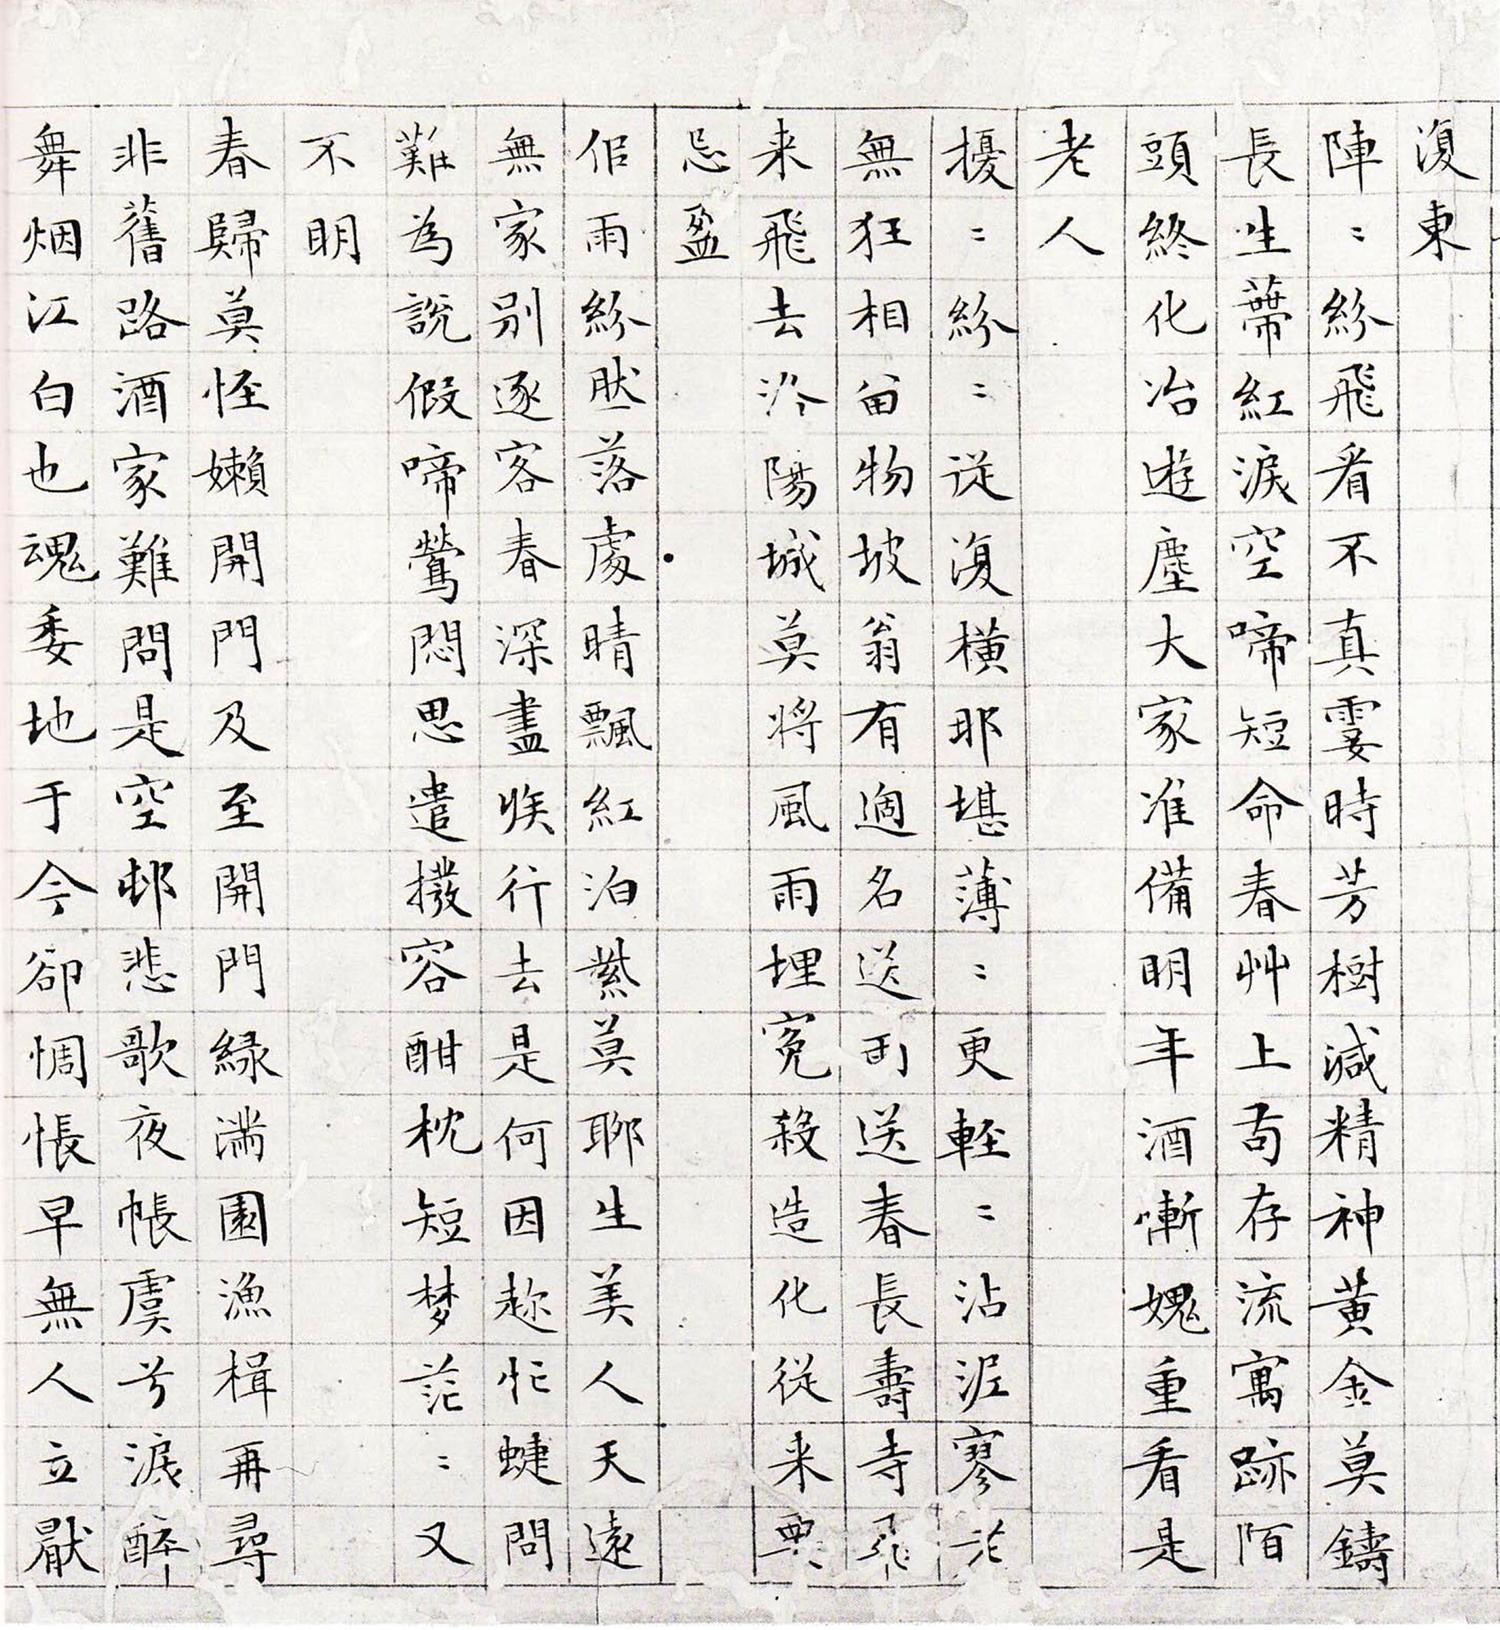 復東
陣〻紛飛看不真霎時芳樹減精神黃金莫鑄
長生蔕紅淚空啼短命春艸上苟存流寓跡陌
頭終化冶遊塵大家准備明年酒慚媿重看是
老人
擾〻紛〻從復橫那堪薄〻更輕〻沾泥寥
無狂相留物坡翁有過名送送春長壽寺飛
来飛去汾陽城莫將風雨埋冤殺造化從来
忌盈
佀雨紛然落處晴飄紅泊紫莫聊生美人天遠
無家別逐客春深盡族行去是何因趂忙蜨問
難為說假啼鶯悶思遣撥容酣枕短夢茫〻又
不明
春歸莫怪嬾開門及至開門綠滿園漁楫再尋
非舊路酒家難問是空邨悲歌夜帳虞兮淚醉
舞烟江白也魂委地于今卻惆悵早無人立厭